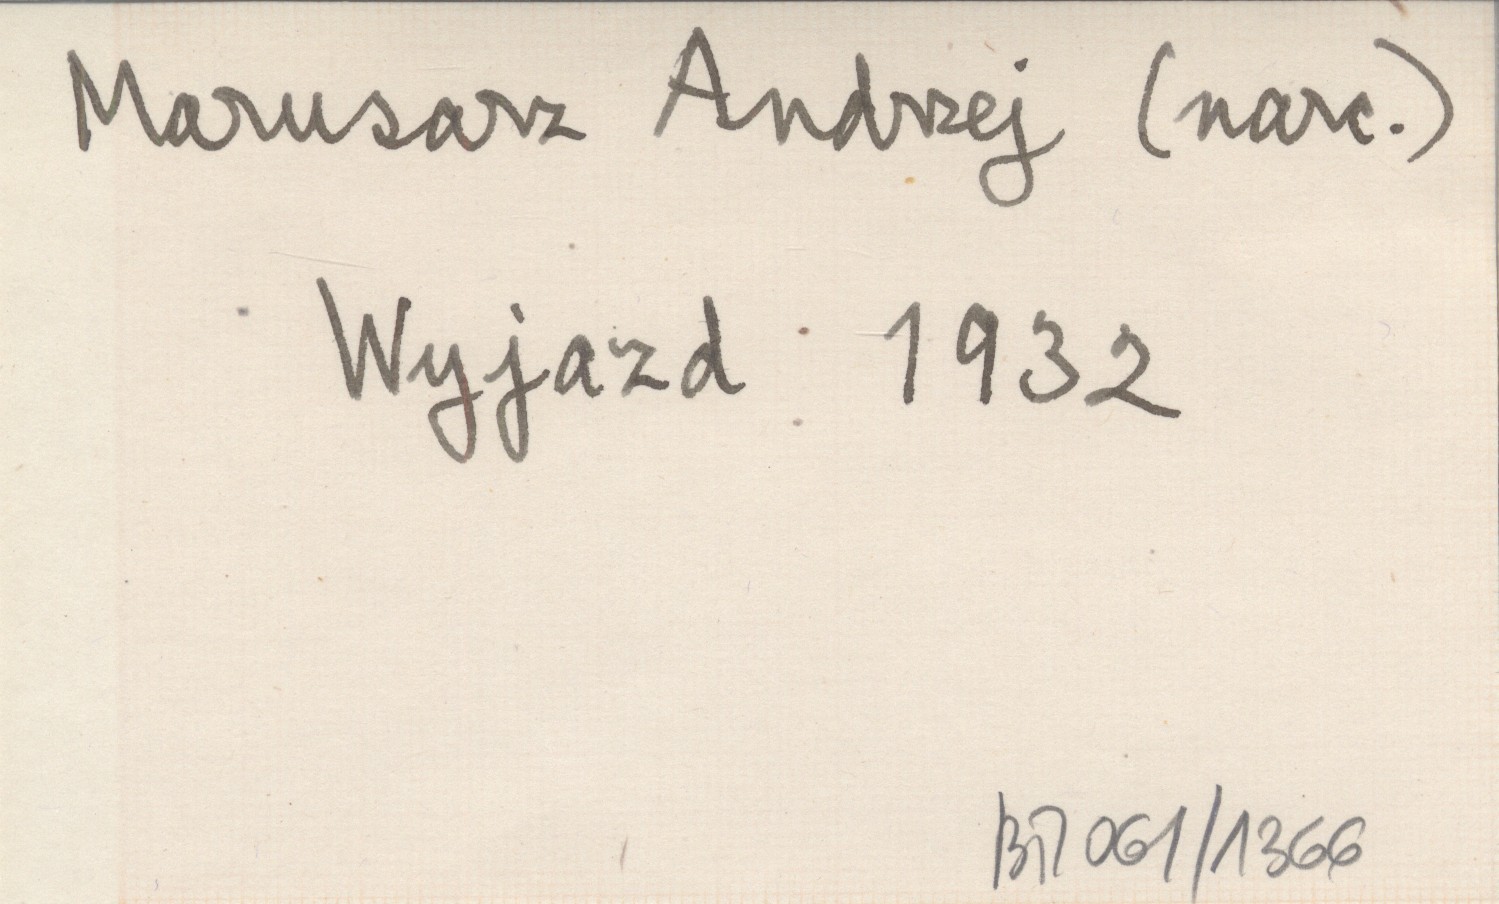 Marusarz Andrzej (narc.)
Wyjazd 1932
061/1366